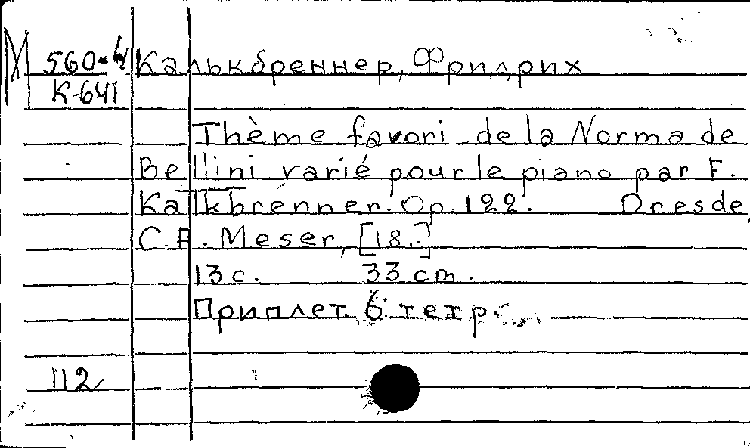 М 560-4 Калькбреннер, Фридрих
К-641
Thème favori de la Norma de
Bellini varié pour le piano par F.
Kalkbrenner. Op. 122. Dresde,
C.F. Meser, [18..]
13 с. 33 cm.
Приплет. 6 тетр
112